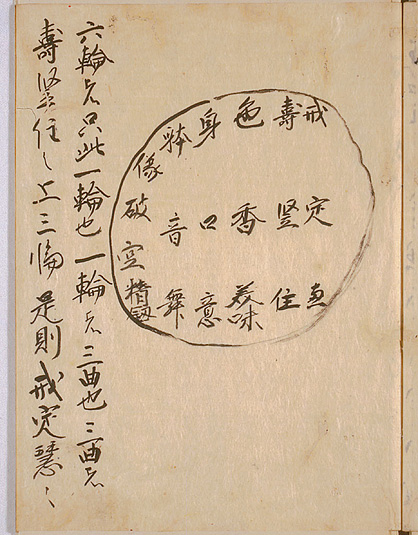 戒 定 恵
壽 竪 住
色 香 美味
身 口 意
躰 音 舞
像 破 空
六輪者只此一輪也一輪者三曲也三曲者
壽竪住〻上三輪是則戒定慧〻